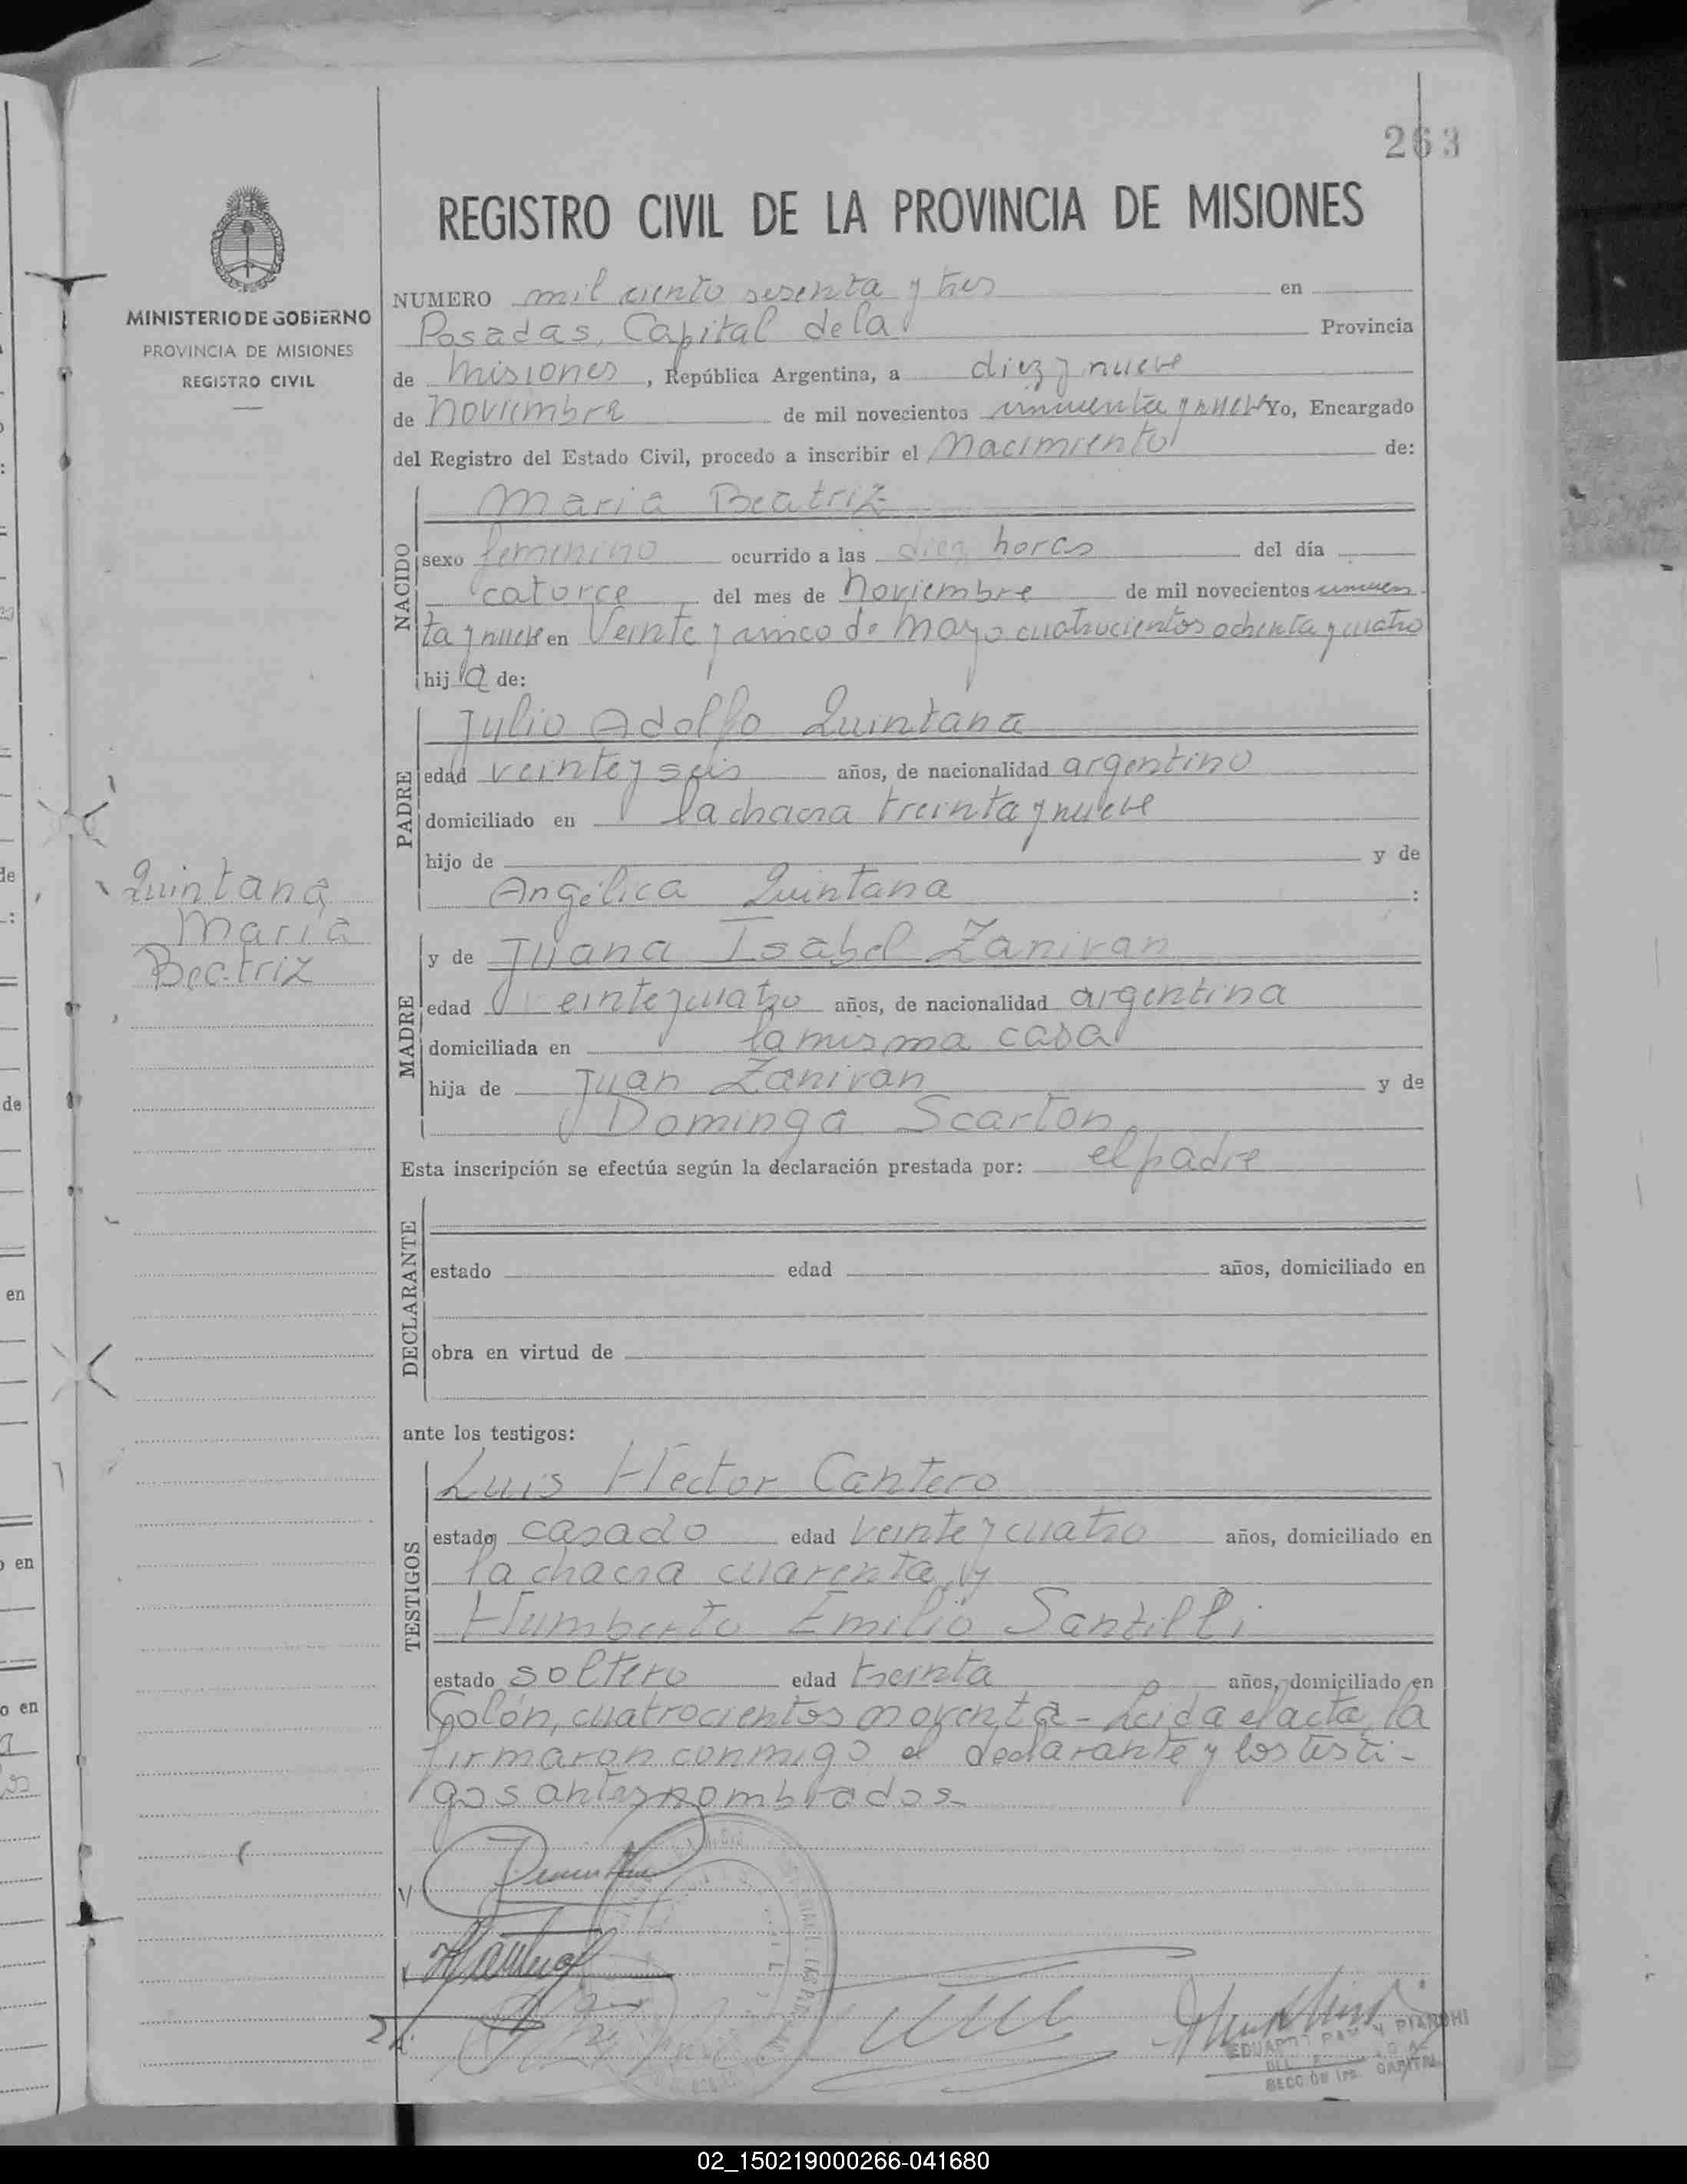 263
REGISTRO CIVIL DE LA PROVINCIA DE MISIONES
MINISTERIO DE GOBIERNO
PROVINCIA DE MISIONES
REGISTRO CIVIL
NUMERO mil ciento sesenta y tres en
Posadas, Capital de la Provincia
de Misiones, República Argentina, a diez y nueve
de Noviembre de mil novecientos cincuenta y nueve Yo, Encargado
del Registro del Estado Civil, procedo a inscribir el Nacimiento de:
NACIDO
Maria Beatriz
sexo femenino ocurrido a las diez horas del día
catorce del mes de Noviembre de mil novecientos cincuen
ta y nueve en Veinte y cinco de Mayo cuatrocientos ochenta y cuatro
hij a de:
PADRE
Julio Adolfo Quintana
edad veinte y seis años, de nacionalidad argentino
domiciliado en la chacra treinta y nueve
hijo de y de
Angélica Quintana :
Quintana
Maria
Beatriz
MADRE
y de Juana Isabel Zanivan
edad veinte y cuatro años, de nacionalidad argentina
domiciliada en la misma casa
hija de Juan Zanivan y de
Dominga Scarton
Esta inscripción se efectúa según la declaración prestada por: el padre
DECLARANTE
estado edad años, domiciliado en
obra en virtud de
ante los testigos:
TESTIGOS
Luis Hector Cantero
estado casado edad veinte y cuatro años, domiciliado en
la chacra cuarenta y
Humberto Emilio Santilli
estado soltero edad treinta años, domiciliado en
Colón, cuatrocientos noventa - Leida el acta, la
firmaron conmigo el declarante y los testi-
gos antes nombrados-
02_150219000266-041680